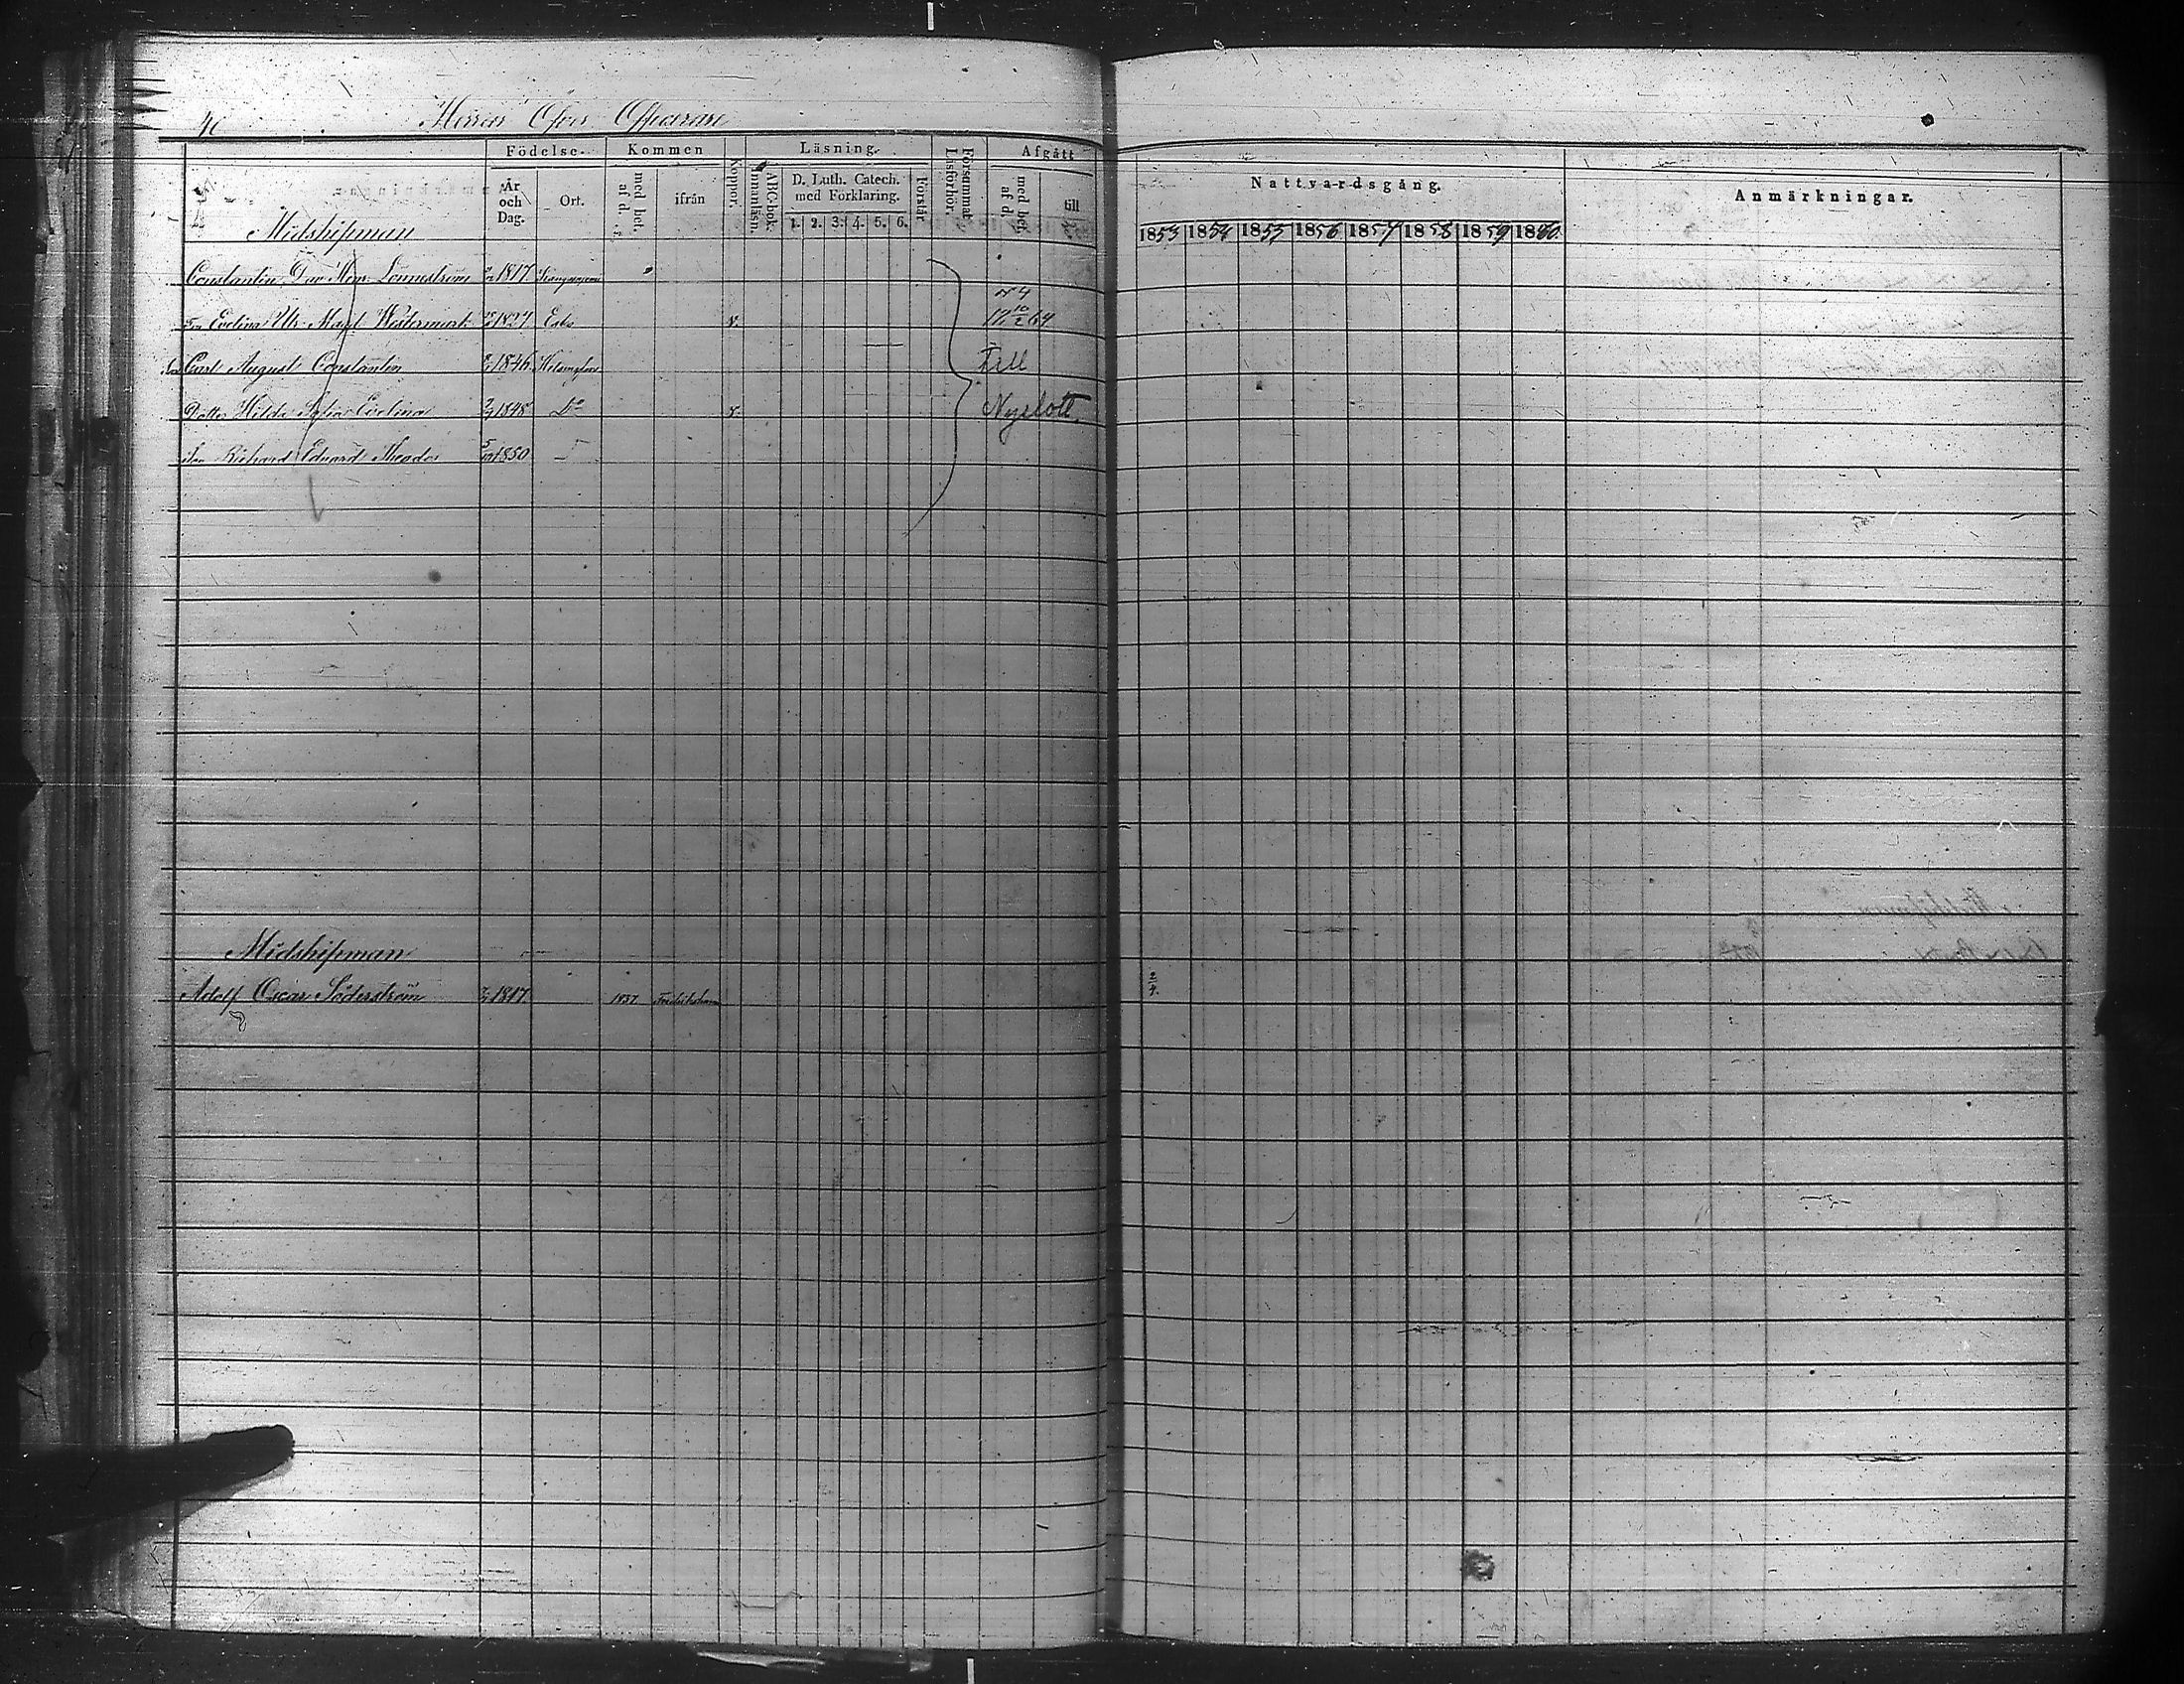 40 Herrar Öfver Officerare
Födelse- Kommen Läsning. Afgått
År och Dag. Ort. med bet. af d. ifrån Koppor. Innanläsn. ABC-bok. D. Luth. Catech. med Förklaring. Förstår Försummat Läsförhör. med bet. af d. till
1. 2. 3. 4. 5. 6.
Nattvardsgång. Anmärkningar.
1853 1854 1855 1856 1857 1858 1859 1860
Midshipman
Constantin Lönneström 1817
Evelina Ulr. Magd. Westermark 1827 Esbo v. N 4 12 10/2 64
Son Carl August Constantin 1846 Helsingfors Till
Dotter Hilda Sofia Evelina 1848 Do v. Nyslott
Son Richard Eduard Theodor 1850
Midshipman
Adolf Oscar Söderström 1817 1837 Fredrikshamn 2/4.